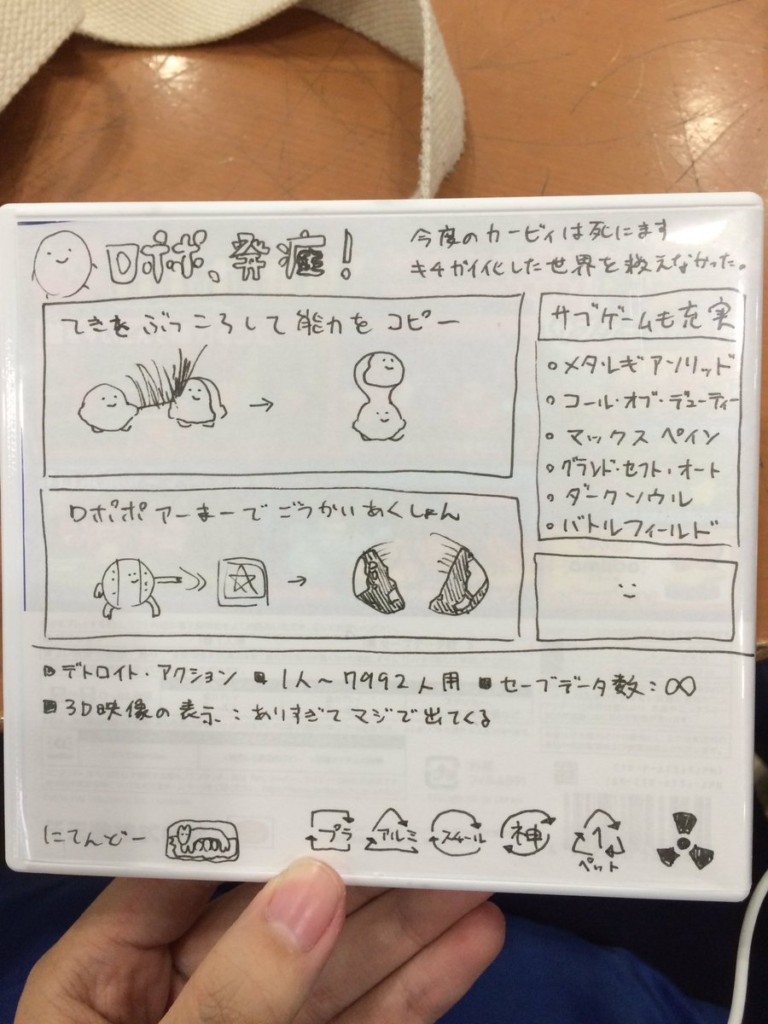 ロボボ、発症!
今度のカービィは死にます
キチガイ化した世界を救えなかった。
てきをぶっころして能力をコピー
サブゲームも充実
・メタルギアソリッド
・コール・オブ・デューティー
・マックスペイン
・グランド・セフト・オート
・ダークソウル
・バトルフィールド
ロボボアーまーでごうかいあくしょん
デトロイト・アクション 1人〜7992人用 セーブデータ数:∞
3D映像の表示:ありすぎてマジで出てくる
にてんどー
プラ
アルミ
スチール
神
1
ペット